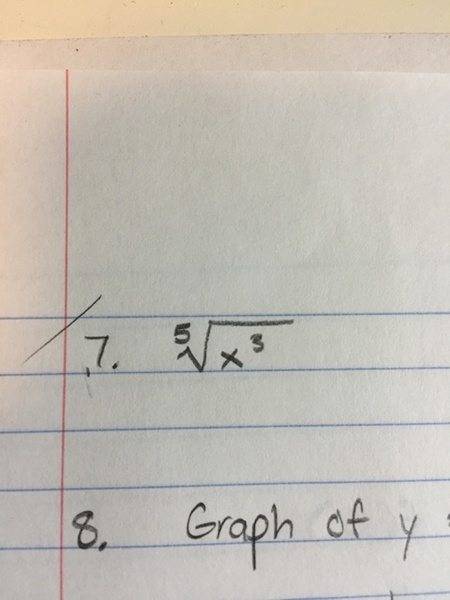 7. ⁵√x³
8. Graph of y